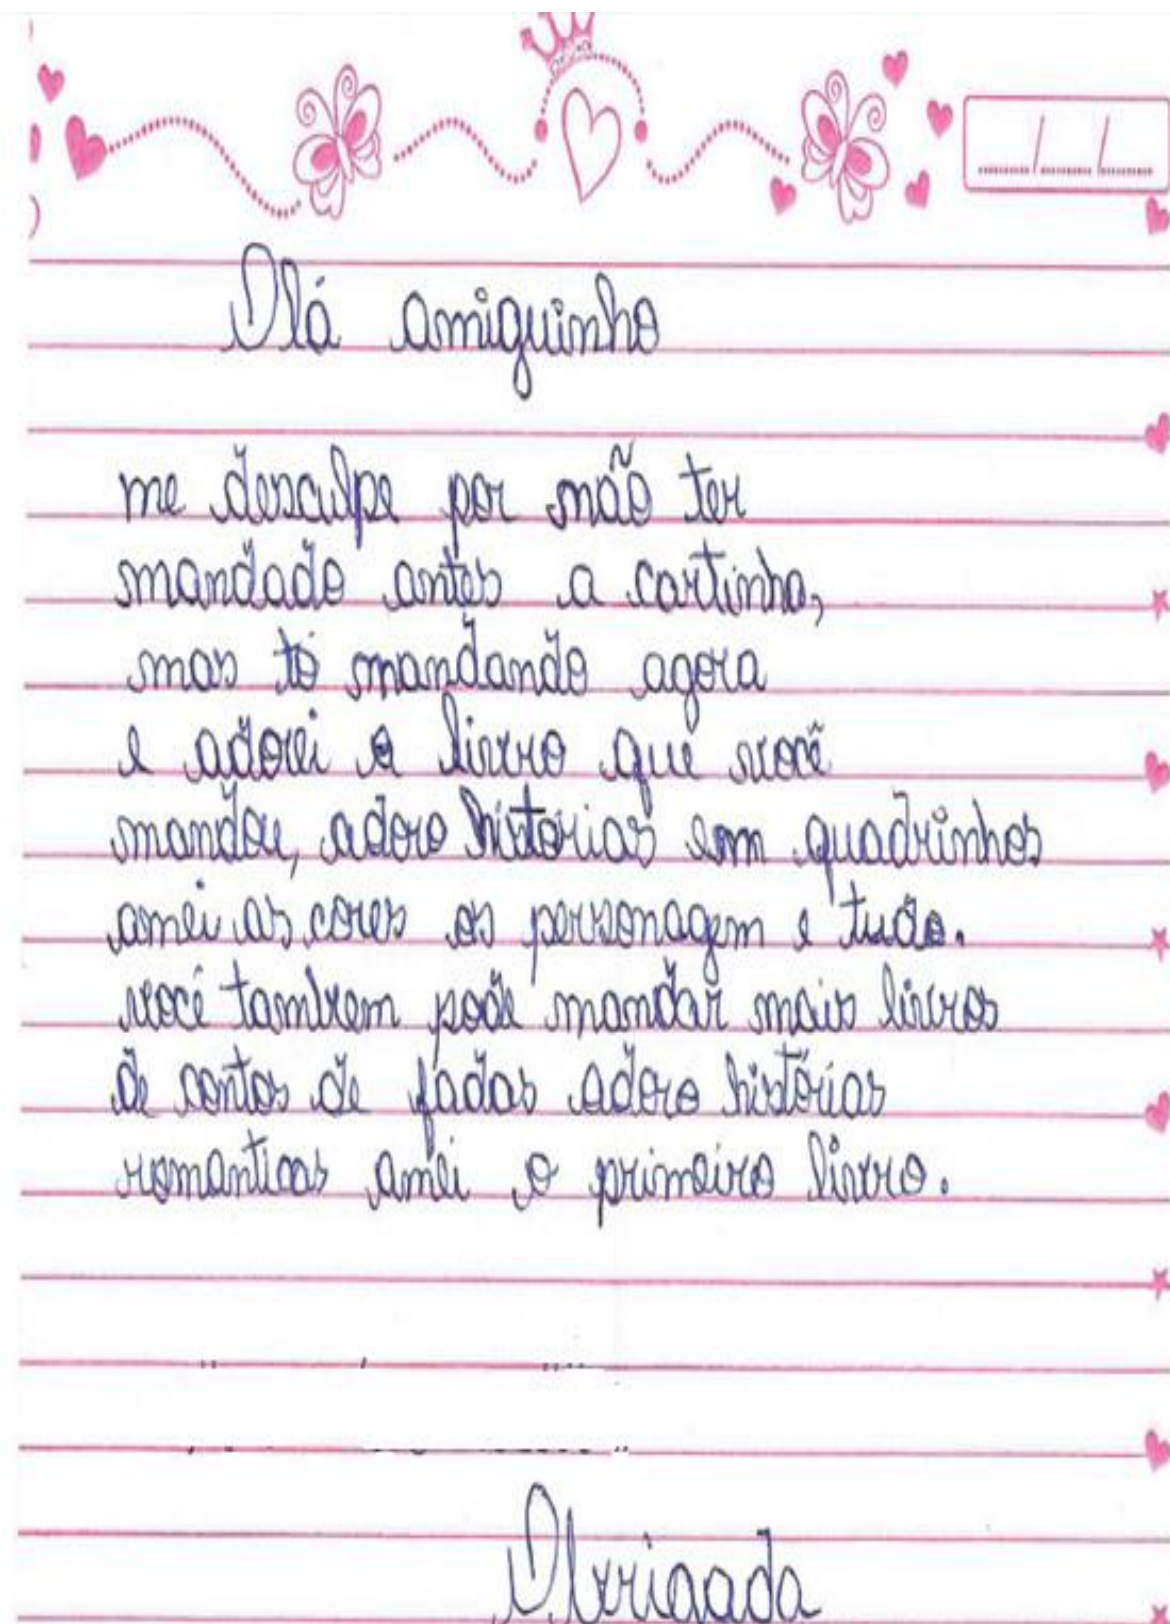 Olá amiguinho
me desculpe por não ter
mandado antes a cartinha,
mas tô mandando agora
e adorei o livro que você
mandou, adoro historias em quadrinhos
amei as cores os personagem e tudo.
você tambem pode mandar mais livros
de contos de fadas adoro histórias
romanticas amei o primeiro livro.
Obrigada